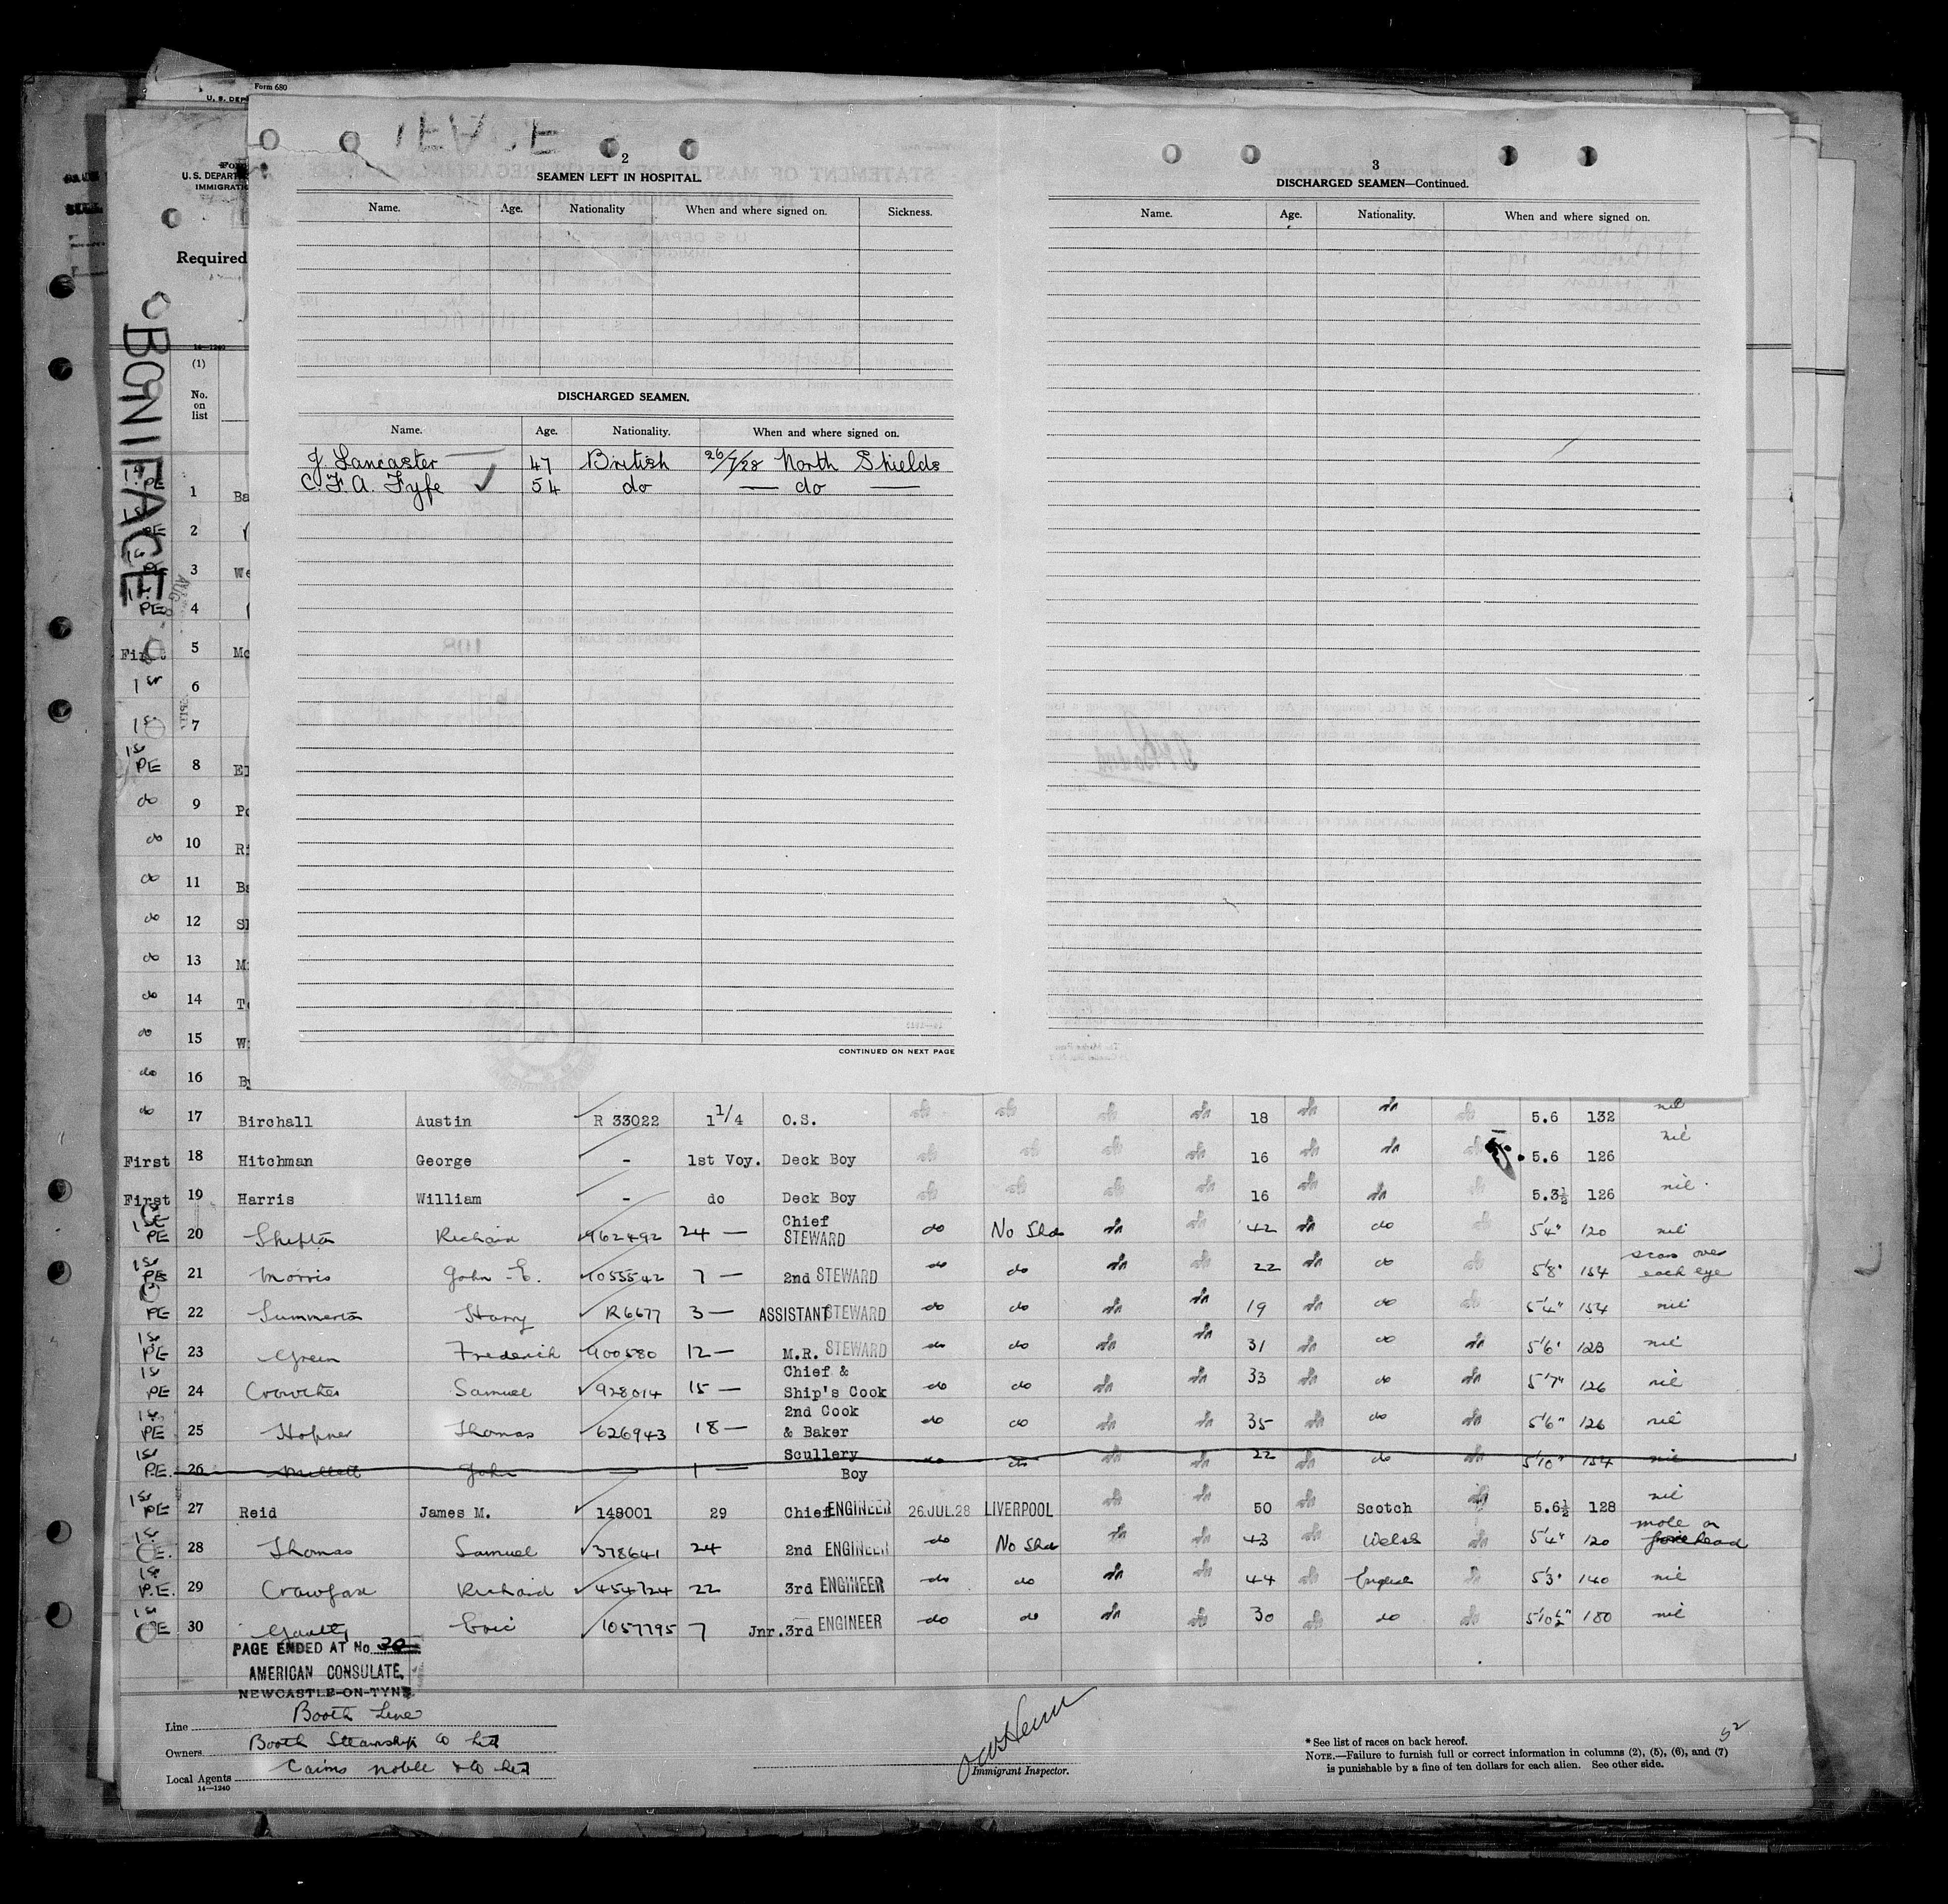 Form 680
U. S. DEP
U.S. DEPART
IMMIGRATI
Required
BONIFACE
2
SEAMEN LEFT IN HOSPITAL.
Name. Age. Nationality When and where signed on. Sickness.
DISCHARGED SEAMEN.
Name. Age. Nationality. When and where signed on.
J. Lancaster 47 British 26/7/28 North Shields
C. F. A. Fyfe ✓ 54 do — do —
CONTINUED ON NEXT PAGE
3
DISCHARGED SEAMEN—Continued.
Name. Age. Nationality. When and where signed on.
14—1240
(1)
No.
on
list
PE 1 Ba
PE 2
3 We
PE 4
First 5 Mc
1st 6
1st 7
1st PE 8 El
do 9 Po
do 10 Ri
do 11 Ba
do 12 Sh
do 13 M
do 14 To
do 15 W
do 16 By
do 17 Birchall Austin R 33022 1 1/4 O.S. do do do do 18 do do do 5.6 132 nil
First 18 Hitchman George - 1st Voy. Deck Boy do do do do 16 do do do 5.6 126 nil
First 19 Harris William - do Deck Boy do do do do 16 do do do 5.3½ 126 nil
1st PE 20 Shefton Richard 962492 24 — Chief STEWARD do No Shds do do 42 do do 5'4" 120 nil
1st PE 21 Morris John E. 1055542 7 — 2nd STEWARD do do do do 22 do do do 5'8" 154 scar over each eye
PE 22 Summerton Harry R6677 3 — ASSISTANT STEWARD do do do do 19 do do do 5'4" 154 nil
1st PE 23 Green Frederick 900580 12 — M.R. STEWARD do do do do 31 do do do 5'6" 123 nil
1st PE 24 Crowther Samuel 928014 15 — Chief & Ship's Cook do do do do 33 do do do 5'7" 126 nil
1st PE 25 Hopner Thomas 626943 18 — 2nd Cook & Baker do do do do 35 do do do 5'6" 126 nil
1st PE. 26 Millett John — 1 — Scullery Boy do do do do 22 do do do 5'10" 154 nil
1st PE 27 Reid James M. 148001 29 Chief ENGINEER 26.JUL.28 LIVERPOOL do do 50 do Scotch do 5.6½ 128 nil
1st E. 28 Thomas Samuel 378641 24 2nd ENGINEER do No Shds do do 43 do Welsh do 5'4" 120 mole on forehead
1st P.E. 29 Crawford Richard 454724 22 3rd ENGINEER do do do do 44 do English do 5'3" 140 nil
1st E 30 Eric 1057795 7 Jnr.3rd ENGINEER do do do do 30 do do do 5'10½" 180 nil
PAGE ENDED AT No. 30
AMERICAN CONSULATE,
NEWCASTLE-ON-TYNE
Line Booth Line
Owners Booth Steamship Co Ltd
Local Agents Cairns Noble & Co Ltd
14—1240
Immigrant Inspector.
52
* See list of races on back hereof.
NOTE.—Failure to furnish full or correct information in columns (2), (5), (6), and (7)
is punishable by a fine of ten dollars for each alien. See other side.